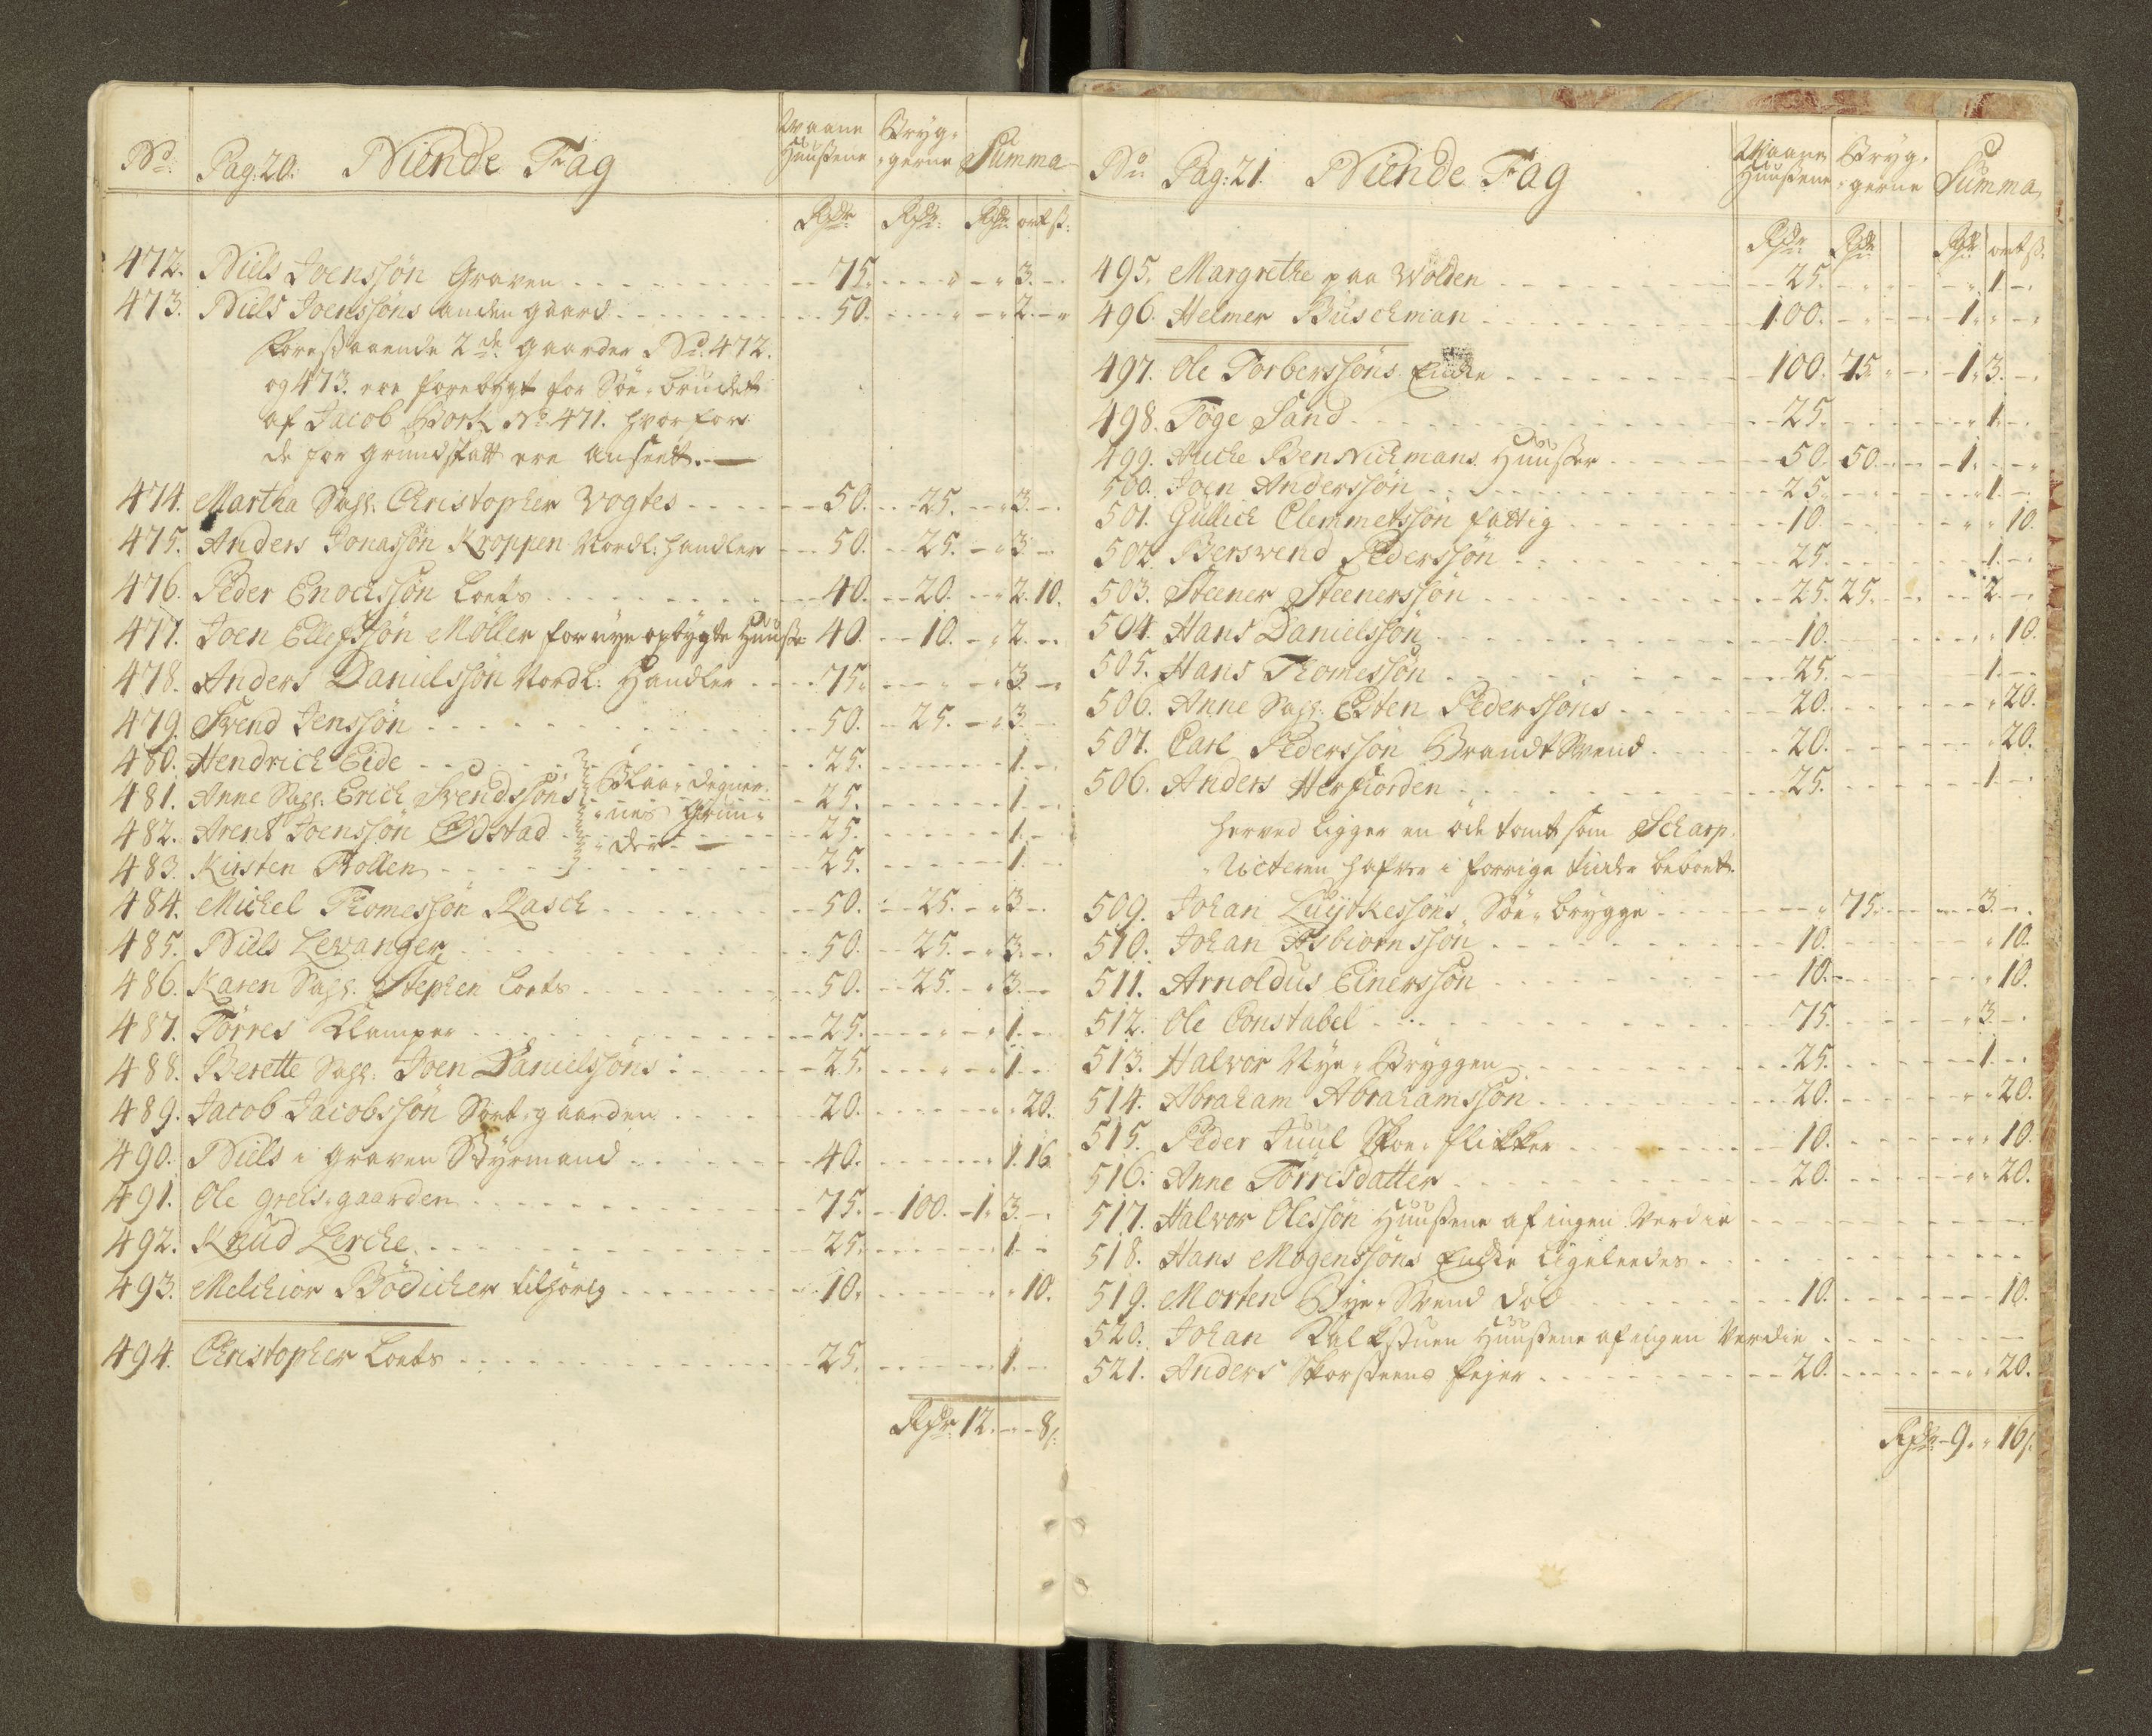 No: Pag: 20. Niende Tag Waane Huusene Bryg-gerne Summa
Rdr: Rdr: Rdr: ort ß:
472. Niels Joenssøn Graven 75. 3.
473. Niels Joenssøns anden gaard 50. 2.
Forestaaende 2de gaarder No: 472.
og 473. ere forebÿgt for Söe-bruuket
af Jacob Bork No 471. hvorfor
de for grundskatt ere anseett.
474. Martha Sahl: Christopher Vogtes 50. 25. 3.
475. Anders Jonassøn Kroppen Nordl: handler 50. 25. 3.
476. Peder Enochssøn Loets 40. 20. 2. 10.
477. Joen Ellefssøn Møller for nye opbygte Huuse 40. 10. 2.
478. Anders Danielssøn Nordl: Handler 75. 3.
479. Svend Jenssøn 50. 25. 3.
480. Hendrich Eide 25. 1.
481. Anne Sahl: Erich Svendssøns 25. 1.
482. Arent Joenssøn Ødstad 25. 1.
483. Kirsten Hollen 25. 1.
Blaae-degner-
nes Grun-
der
484. Michel Thomessøn Rasch 50. 25. 3.
485. Niels Levanger 50. 25. 3.
486. Karen Sahl: Stephen Loets 50. 25. 3.
487. Törres Klamper 25. 1.
488. Berette Sahl: Joen Danielssøns 25. 1.
489. Jacob Jacobssøn Sort-gaarden 20. 20.
490. Niels i Graven Styrmand 40. 1. 16
491. Ole Greis-gaarden 75. 100. 1. 3.
492. Knud Lerche 25. 1.
493. Melchior Bødicher tilhørig 10. 10.
494. Christopher Loets 25. 1.
Rdr: 12. 8ß:
No: Pag: 21. Niende Tag Waane Huusene Bryg-gerne Summa
Rdr Rdr Rdr ort ß:
495. Margrethe paa Wolden 25. 1
496. Helmer Buschman 100. 1.
497. Ole Torberssøns Encke 100. 75. 1. 3.
498. Toge Sand 25. 1.
499. Auche Ben Wichmans Huuser 50. 50. 1.
500. Joen Anderssøn 25. 1.
501. Gullich Clemmetssøn fattig 10. 10.
502. Bersvend Pederssøn 25. 1.
503. Steener Steenerssøn 25. 25. 2.
504. Hans Danielssøn 10. 10.
505. Hans Thomessøn 25. 1.
506. Anne Sahl: Esten Pederssøns 20. 20.
507. Carl Pederssøn Brandt Svend 20. 20.
506. Anders Herfiorden 25. 1.
herved ligger en öde tomt som Scharp-
Ricteren hafver i forrige tider beboet.
509. Johan Luytkessøns Söe-brygge 75. 3.
510. Johan Asbiørnssøn 10. 10.
511. Arnoldus Einerssøn 10. 10.
512. Ole Constabel 75. 3.
513. Halvor Nye-Bryggen 25. 1.
514. Abraham Abrahamssøn 20. 20.
515. Peder Juul Skoe-flikker 10. 10.
516. Anne Törrisdatter 20. 20.
517. Halvor Olessøn Huusene af ingen Verdie
518. Hans Mogenssøns Encke ligeleedes
519. Morten Bye-Svend død 10. 10.
520. Johan Kalkstuen Huusene af ingen Verdie
521. Anders Skorsteens fejer 20. 20.
Rdr: 9. 16ß